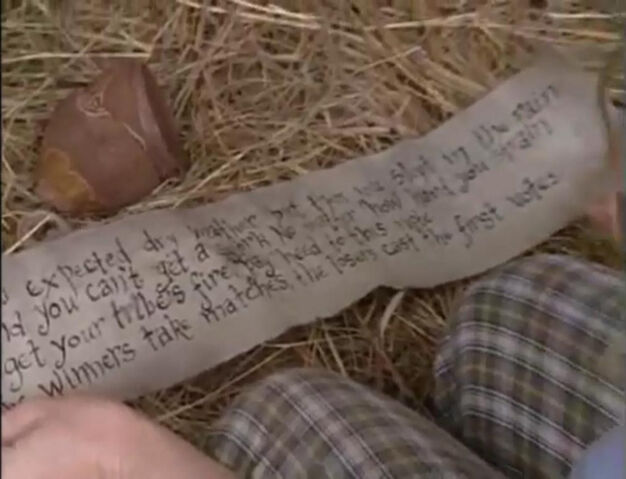 expected dry weather but then we slept in the rain
nd you can't get a spark no matter how hard you strain
get your tribe's fire pay heed to this note
winners take matches, the losers cast the first votes